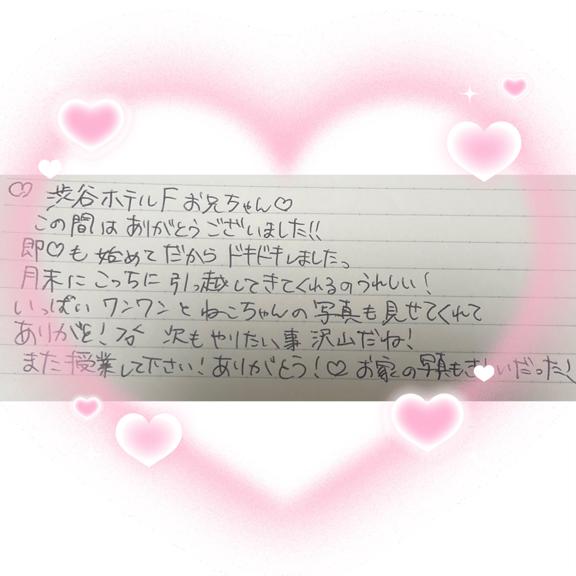 ♡ 渋谷ホテルF お兄ちゃん♡
この間は ありがとう ございました!!
即♡も 始めて だから ドキドキしました。
月末に こっちに 引っ越してきてくれるの うれしい!
いっぱい ワンワンと ねこちゃんの 写真も 見せてくれて
ありがと! 次も やりたい 事 沢山だね!
また 授業して下さい! ありがとう!♡ お家の写真も だった!